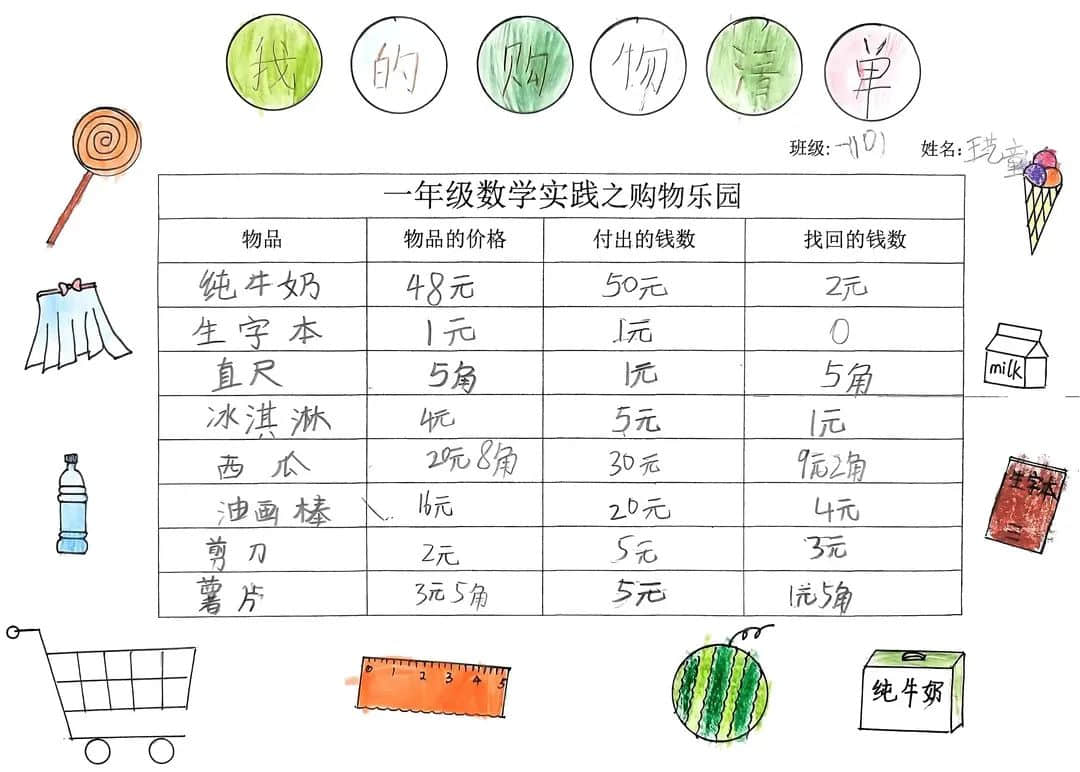 我的购物清单
班级: 一(1) 姓名:
一年级数学实践之购物乐园
物品 物品的价格 付出的钱数 找回的钱数
纯牛奶 48元 50元 2元
生字本 1元 1元 0
直尺 5角 1元 5角
冰淇淋 4元 5元 1元
西瓜 20元8角 30元 9元2角
油画棒 16元 20元 4元
剪刀 2元 5元 3元
薯片 3元5角 5元 1元5角
milk
生字本
0 1 2 3 4 5
纯牛奶